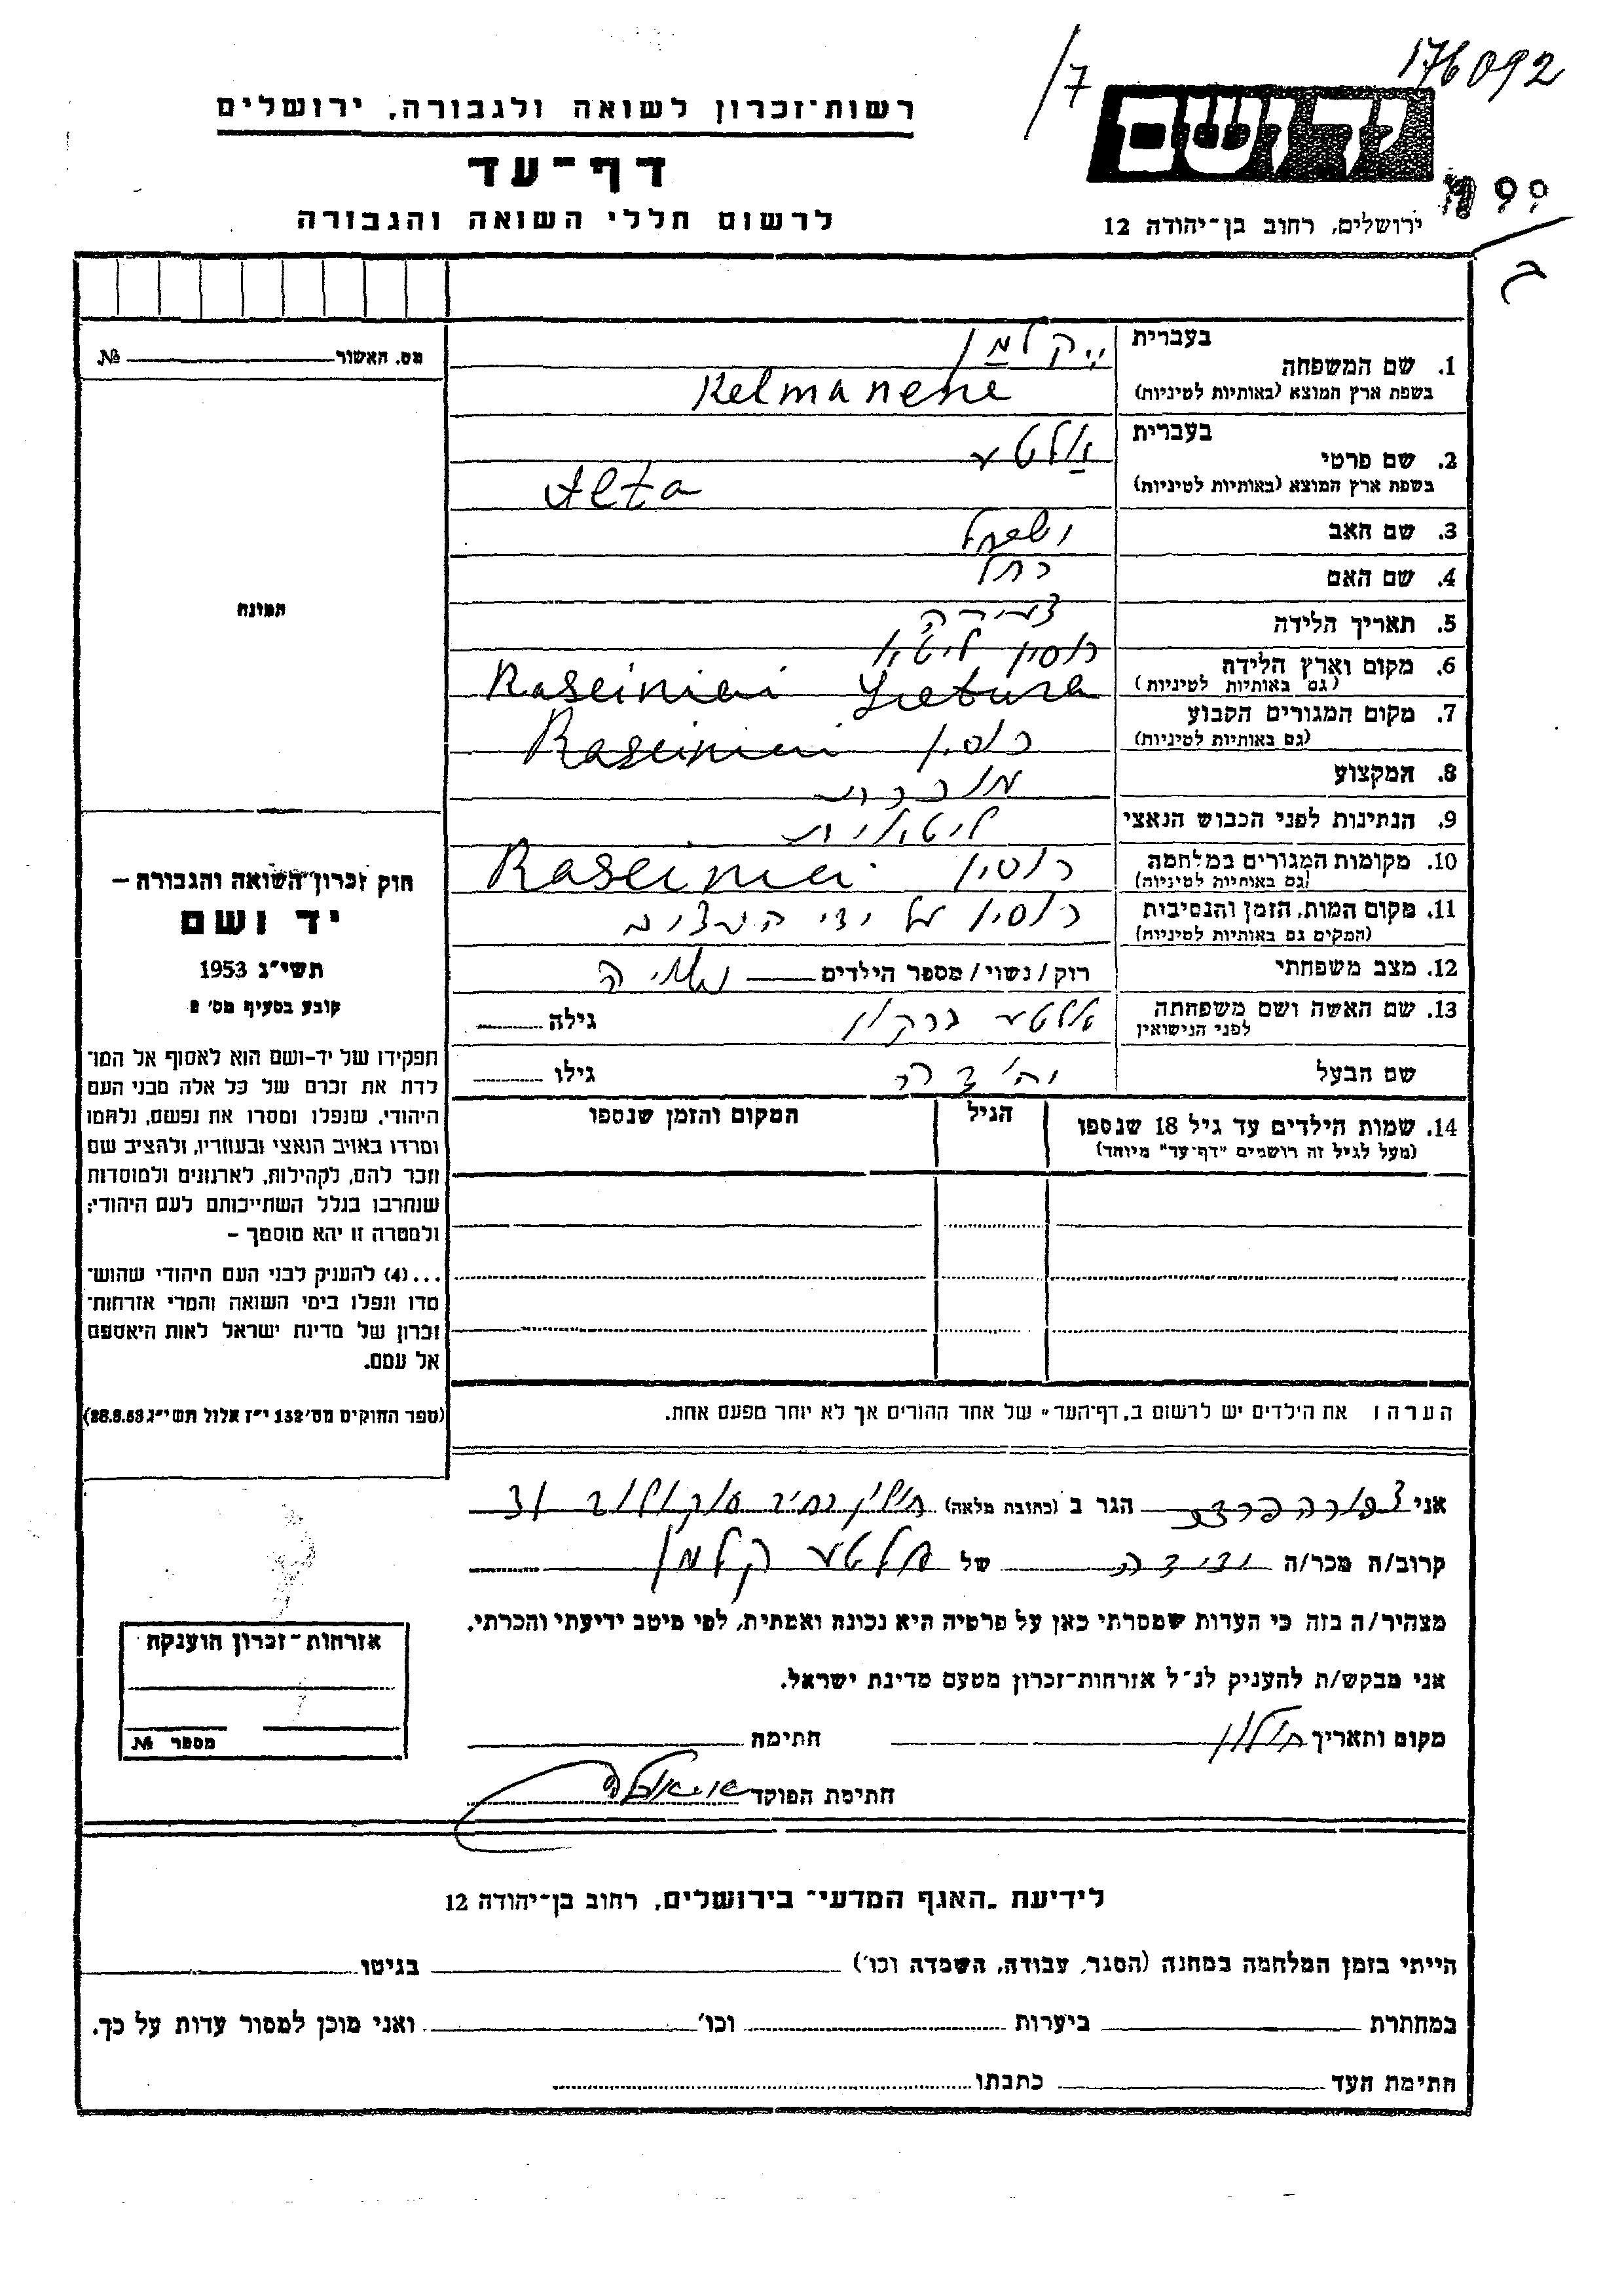 176092
/7
רשות־זכרון לשואה ולגבורה, ירושלים
יד ושם
דף־עד
לרשום חללי השואה והגבורה
ירושלים, רחוב בן־יהודה 12
99
מס. האשור № 
1. שם המשפחה בעברית קלמן
בשפת ארץ המוצא (באותיות לטיניות) Kelmanene
2. שם פרטי בעברית אלטע
בשפת ארץ המוצא (באותיות לטיניות) Alta
3. שם האב ישראל
4. שם האם רחל
5. תאריך הלידה צעירה
6. מקום וארץ הלידה רוסין ליטא
(גם באותיות לטיניות) Raseiniai Lietuva
7. מקום המגורים הקבוע רוסין Raseiniai
(גם באותיות לטיניות)
8. המקצוע מוכרת
9. הנתינות לפני הכבוש הנאצי ליטאית
10. מקומות המגורים במלחמה רוסין Raseiniai
(גם באותיות לטיניות)
11. מקום המות, הזמן והנסיבות רוסין על ידי הנאצים
(המקום גם באותיות לטיניות)
12. מצב משפחתי רוק/נשוי/מספר הילדים נשואה
13. שם האשה ושם משפחתה אלטע גילה
לפני הנישואין
שם הבעל גילו
14. שמות הילדים עד גיל 18 שנספו הגיל המקום והזמן שנספו
(מעל לגיל זה רושמים "דף־עד" מיוחד)
הערה: את הילדים יש לרשום ב"דף־העד" של אחד ההורים אך לא יותר מפעם אחת.
תמונה
חוק זכרון השואה והגבורה –
יד ושם
תשי״ג 1953
קובע בסעיף מס׳ 2
תפקידו של יד־ושם הוא לאסוף אל המו־
לדת את זכרם של כל אלה מבני העם
היהודי, שנפלו ומסרו את נפשם, נלחמו
ומרדו באויב הנאצי ובעוזריו, ולהציב שם
וזכר להם, לקהילות, לארגונים ולמוסדות
שנחרבו בגלל השתייכותם לעם היהודי;
ולמטרה זו יהא מוסמך –
...(4) להעניק לבני העם היהודי שהוש־
מדו ונפלו בימי השואה והמרי אזרחות־
זכרון של מדינת ישראל לאות היאספם
אל עמם.
(ספר החוקים מס׳ 132 י״ז אלול תשי״ג 28.8.53)
אני צפורה הגר ב (כתובת מלאה)
קרוב/ה מכר/ה ידידה של אלטע קלמן
מצהיר/ה בזה כי העדות שמסרתי כאן על פרטיה היא נכונה ואמתית, לפי מיטב ידיעתי והכרתי.
אני מבקש/ת להעניק לנ״ל אזרחות־זכרון מטעם מדינת ישראל.
מקום ותאריך חולון חתימה
חתימת הפוקד
אזרחות־זכרון הוענקה
מספר №
לידיעת "האגף המדעי" בירושלים, רחוב בן־יהודה 12
הייתי בזמן המלחמה במחנה (הסגר, עבודה, השמדה וכו׳) בגיטו
במחתרת ביערות וכו׳ ואני מוכן למסור עדות על כך.
חתימת העד כתבתו